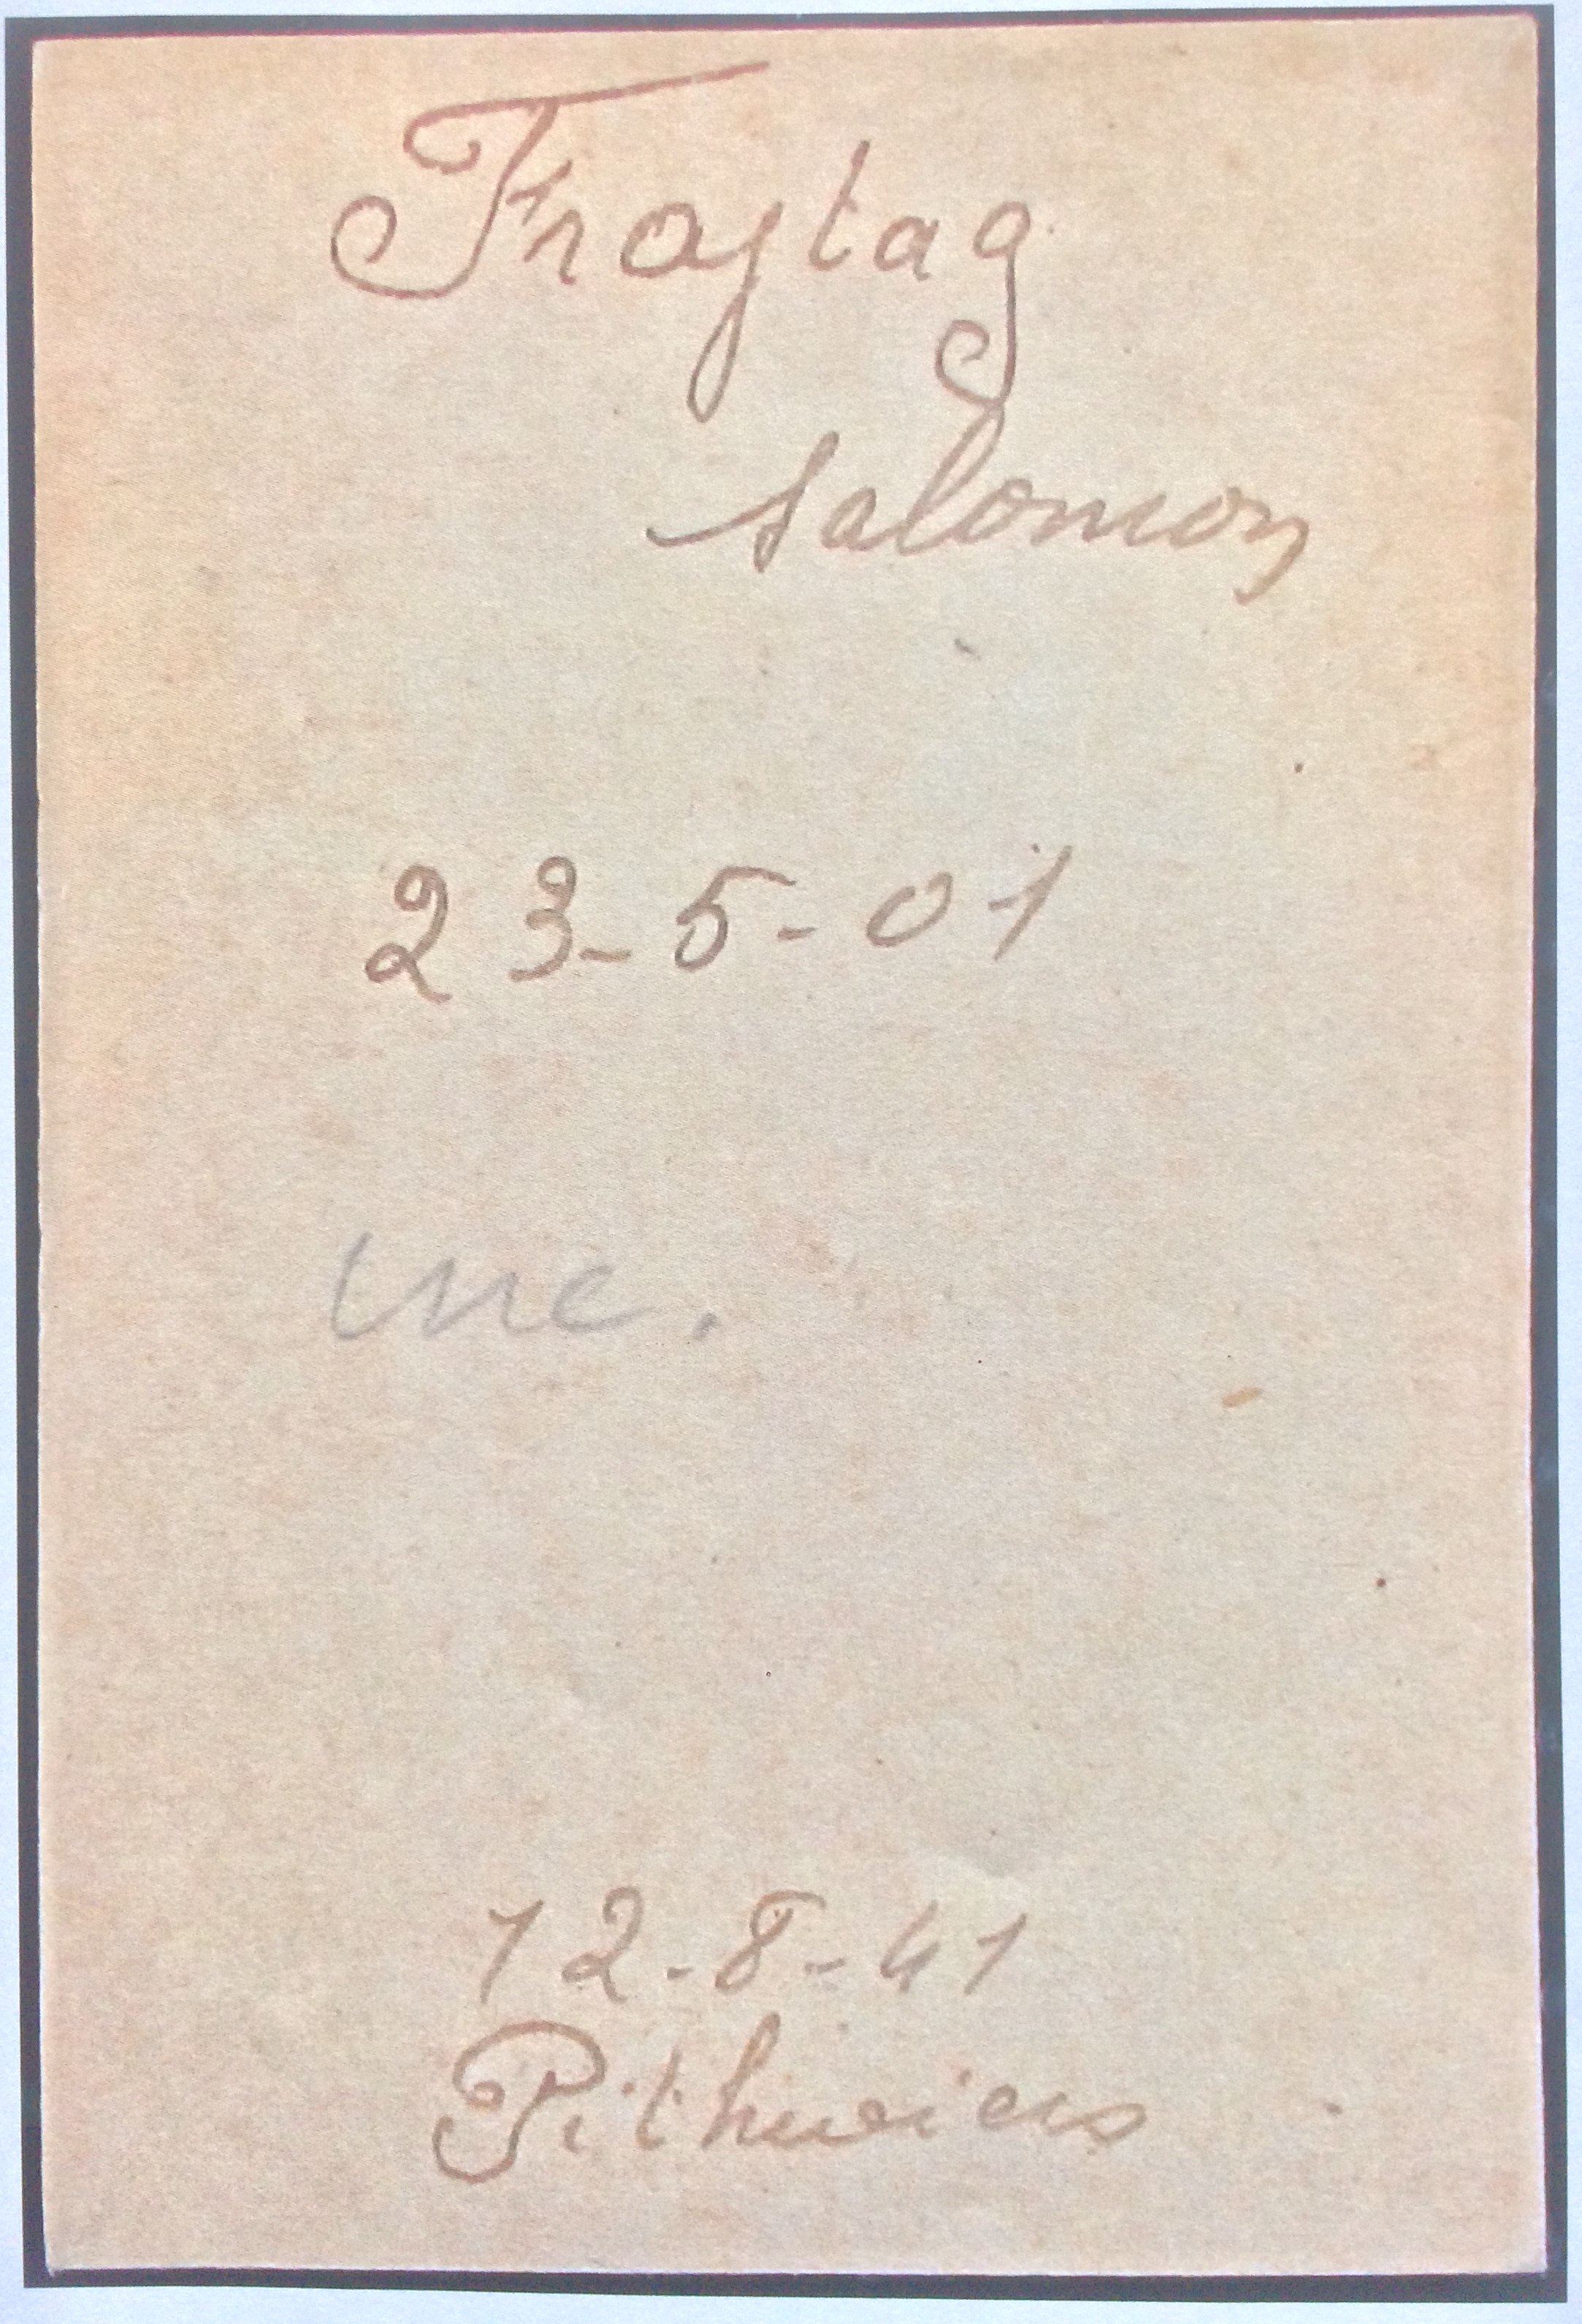 Frajtag
Salomon
23-5-01
12-8-41
Pithiviers